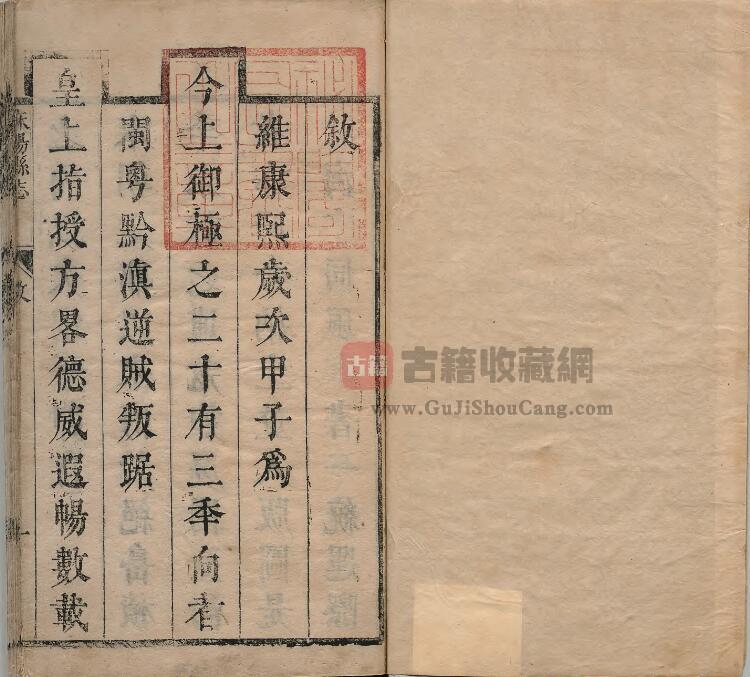 敘
維康熙歲次甲子為
今上御極之二十有三年向者
閩粤黔滇逆賊叛踞
皇上指授方畧德威遐暢數載
陽縣志
敘
一
古籍
古籍收藏網
www.GuJiShouCang.com